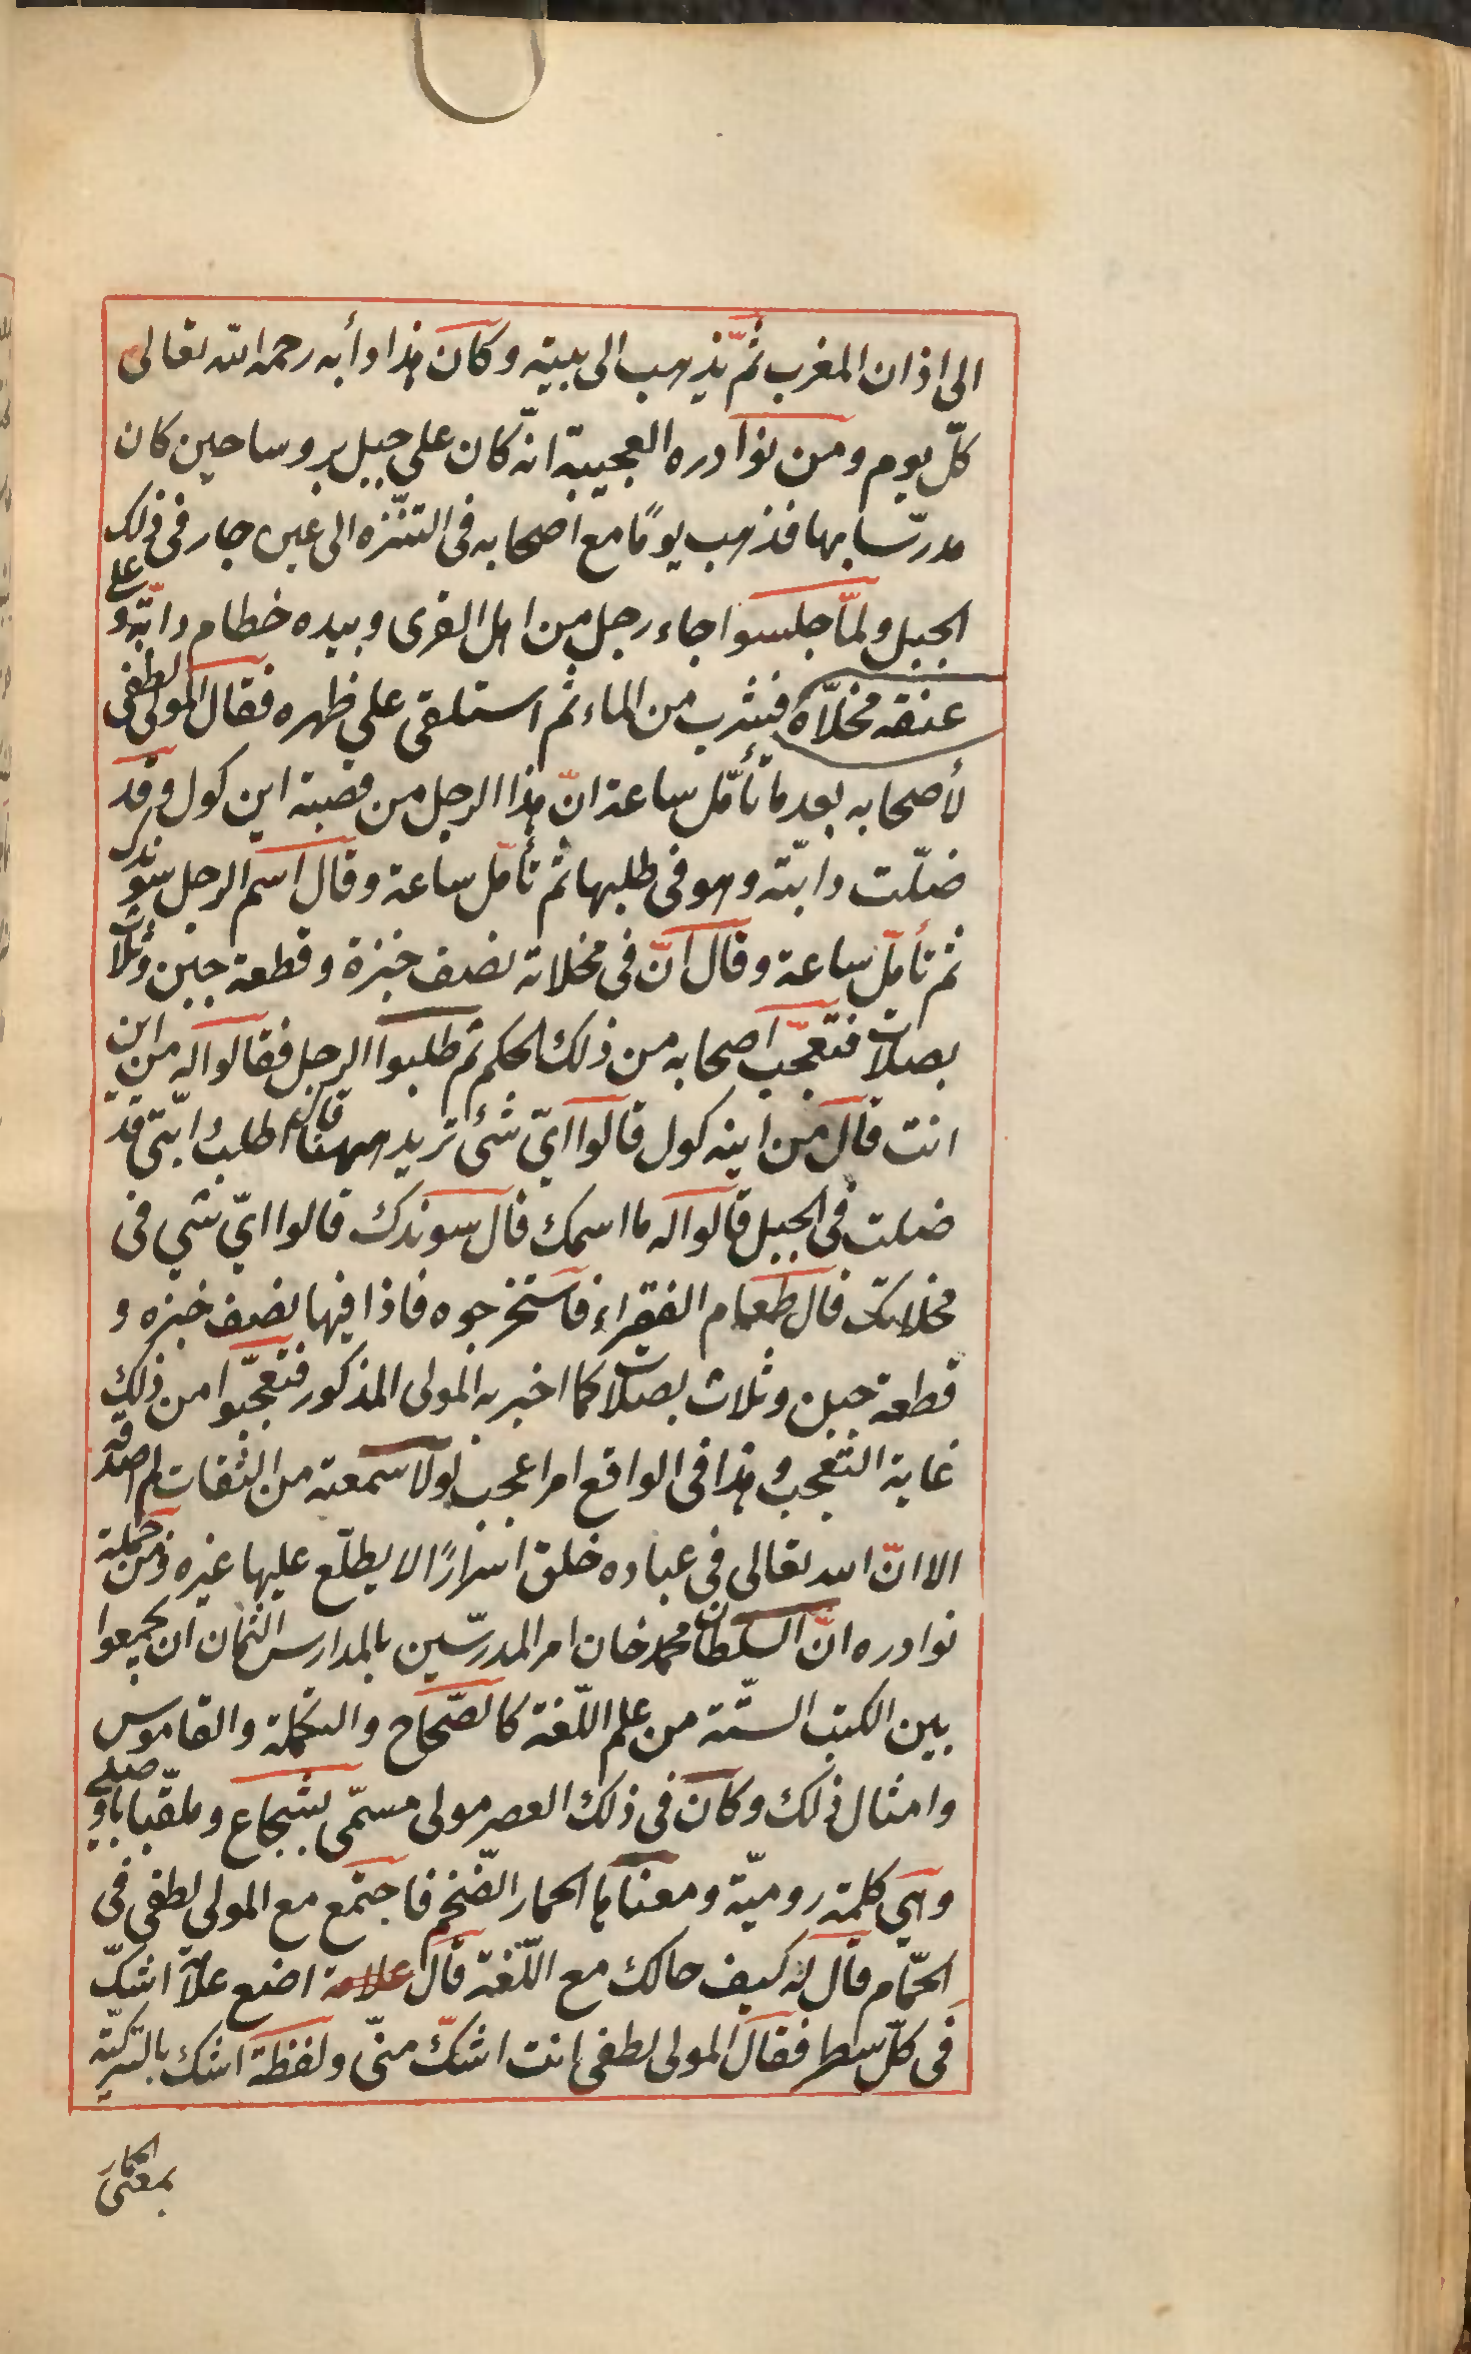 الى اذان المغرب ثمّ يذهب الى بيته وكان هذا دأبه رحمه الله تعالى
كلّ يوم ومن نوادره العجيبة انّه كان على جبل بروسا حين كان
مدرّسا بها فذهب يومًا مع اصحابه فى التنزّه الى عين جار فى ذلك
الجبل ولمّا جلسوا جاء رجل من اهل القرى وبيده خطام دابّة وعلى
عنقه مخلاّة فشرب من الماء ثم استلقى على ظهره فقال المولى لطفى
لأصحابه بعد ما تأمّل ساعة انّ هذا الرجل من قصبة اين كول وقد
ضلّت دابّته وهو فى طلبها ثم تأمّل ساعة وقال اسم الرجل سوندك
ثم تأمّل ساعة وقال انّ فى مخلاته نصف خبزة وقطعة جبن وثلاث
بصلات فتعجّب اصحابه من ذلك الحكم ثم طلبوا الرجل فقالوا له من اين
انت قال من اينه كول قالوا ايّ شئ تريد ههنا قال اطلب دابّتى قد
ضلت فى الجبل قالوا له ما اسمك قال سوندك قالوا ايّ شي فى
مخلاتك قال طعام الفقراء فاستخرجوه فاذا فيها نصف خبزه و
قطعة جبن وثلاث بصلات كما اخبر به المولى المذكور فتعجّبوا من ذلك
غاية التعجب وهذا فى الواقع امرا عجب لولا سمعته من الثقات لم اصدقه
الا انّ الله تعالى فى عباده خلق اسرارًا لا يطلّع عليها غيره ومن جملة
نوادره انّ السلطان محمد خان امر المدرّسين بالمدارس الثمان ان يجمعوا
بين الكتب الستّة من علم اللّغة كالصّحاح والتكملة والقاموس
وامثال ذلك وكان فى ذلك العصر مولى مسمّى بشجاع وملقّبا باوصلى
وهي كلمة روميّة ومعناها الحمار الضّخم فاجتمع مع المولى لطفى فى
الحمّام قال له كيف حالك مع اللّغة قال علامة اضع علامة اشكّ
فى كلّ سطر فقال المولى لطفى انت اشكّ منّى ولفظة اشك بالتركيّة
بمعنى الحمار